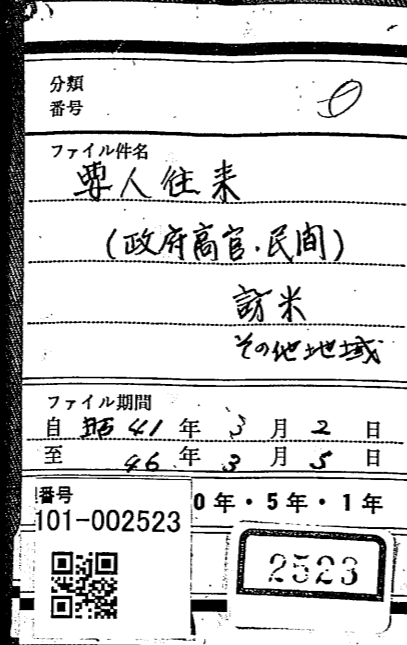 分類
番号
ファイル件名
要人往来
(政府高官・民間)
訪米
その他地域
ファイル期間
自 昭 41 年 3 月 2 日
至 46 年 3 月 5 日
番号 0年・5年・1年
101-002523
2523